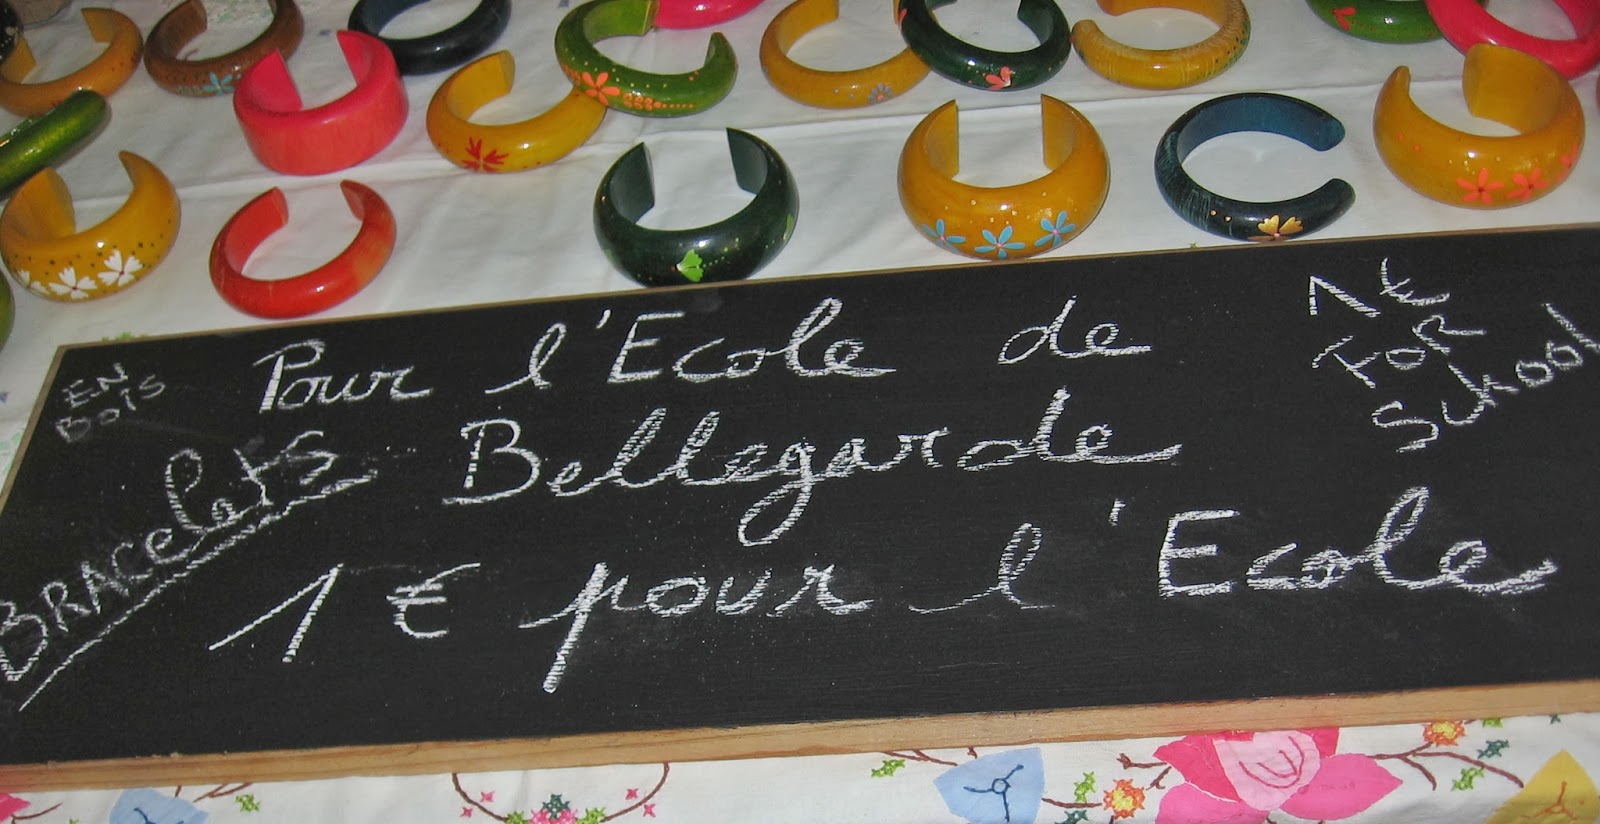 EN
BOIS
BRACelets
Pour l'Ecole de
Bellegarde
1 € pour l'Ecole
1 €
FOR
School